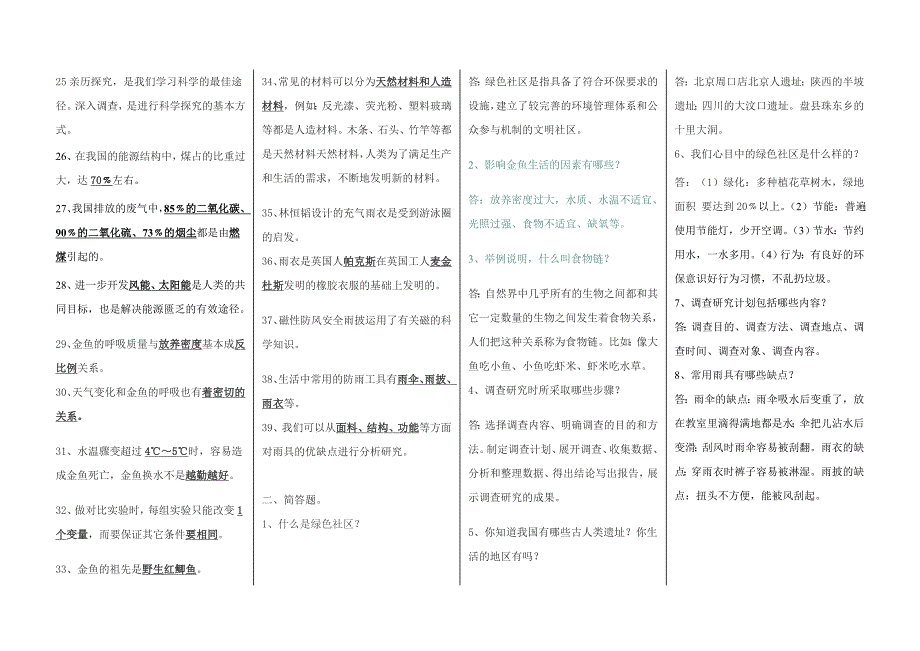 25 亲历探究，是我们学习科学的最佳途
径。深入调查，是进行科学探究的基本方
式。
26、在我国的能源结构中，煤占的比重过
大，达 70%左右。
27、我国排放的废气中，85%的二氧化碳、
90%的二氧化硫、73%的烟尘都是由燃
煤引起的。
28、进一步开发风能、太阳能是人类的共
同目标，也是解决能源匮乏的有效途径。
29、金鱼的呼吸质量与放养密度基本成反
比例关系。
30、天气变化和金鱼的呼吸也有着密切的
关系。
31、水温骤变超过 4℃～5℃时，容易造
成金鱼死亡，金鱼换水不是越勤越好。
32、做对比实验时，每组实验只能改变 1
个变量，而要保证其它条件要相同。
33、金鱼的祖先是野生红鲫鱼。
34、常见的材料可以分为天然材料和人造
材料，例如：反光漆、荧光粉、塑料玻璃
等都是人造材料。木条、石头、竹竿等都
是天然材料天然材料，人类为了满足生产
和生活的需求，不断地发明新的材料。
35、林恒韬设计的充气雨衣是受到游泳圈
的启发。
36、雨衣是英国人帕克斯在英国工人麦金
杜斯发明的橡胶衣服的基础上发明的。
37、磁性防风安全雨披运用了有关磁的科
学知识。
38、生活中常用的防雨工具有雨伞、雨披、
雨衣等。
39、我们可以从面料、结构、功能等方面
对雨具的优缺点进行分析研究。
二、简答题。
1、什么是绿色社区？
答：绿色社区是指具备了符合环保要求的
设施，建立了较完善的环境管理体系和公
众参与机制的文明社区。
2、影响金鱼生活的因素有哪些？
答：放养密度过大，水质、水温不适宜、
光照过强、食物不适宜、缺氧等。
3、举例说明，什么叫食物链？
答：自然界中几乎所有的生物之间都和其
它一定数量的生物之间发生着食物关系，
人们把这种关系称为食物链。比如：像大
鱼吃小鱼、小鱼吃虾米、虾米吃水草。
4、调查研究时所采取哪些步骤？
答：选择调查内容、明确调查的目的和方
法。制定调查计划、展开调查、收集数据、
分析和整理数据、得出结论写出报告，展
示调查研究的成果。
5、你知道我国有哪些古人类遗址？你生
活的地区有吗？
答：北京周口店北京人遗址；陕西的半坡
遗址；四川的大汶口遗址。盘县珠东乡的
十里大洞。
6、我们心目中的绿色社区是什么样的？
答：（1）绿化：多种植花草树木，绿地
面积 要达到 20%以上。（2）节能：普遍
使用节能灯，少开空调。（3）节水：节约
用水，一水多用。（4）行为：有良好的环
保意识好行为习惯，不乱扔垃圾。
7、调查研究计划包括哪些内容？
答：调查目的、调查方法、调查地点、调
查时间、调查对象、调查内容。
8、常用雨具有哪些缺点？
答：雨伞的缺点：雨伞吸水后变重了，放
在教室里滴得满地都是水；伞把几沾水后
变滑；刮风时雨伞容易被刮翻。雨衣的缺
点：穿雨衣时裤子容易被淋湿。雨披的缺
点：扭头不方便，能被风刮起。